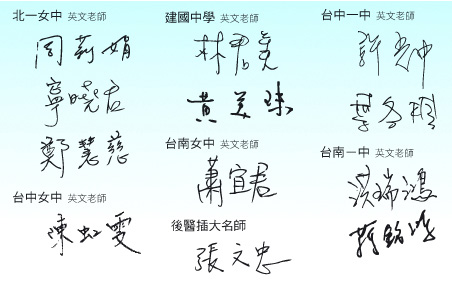 北一女中 英文老師
周莉娟
寧曉君
鄭慧慈
台中女中 英文老師
陳虹雯
建國中學 英文老師
林君美
黃美珠
台南女中 英文老師
蕭宜君
後醫插大名師
張文忠
台中一中 英文老師
台南一中 英文老師
洪瑞鴻